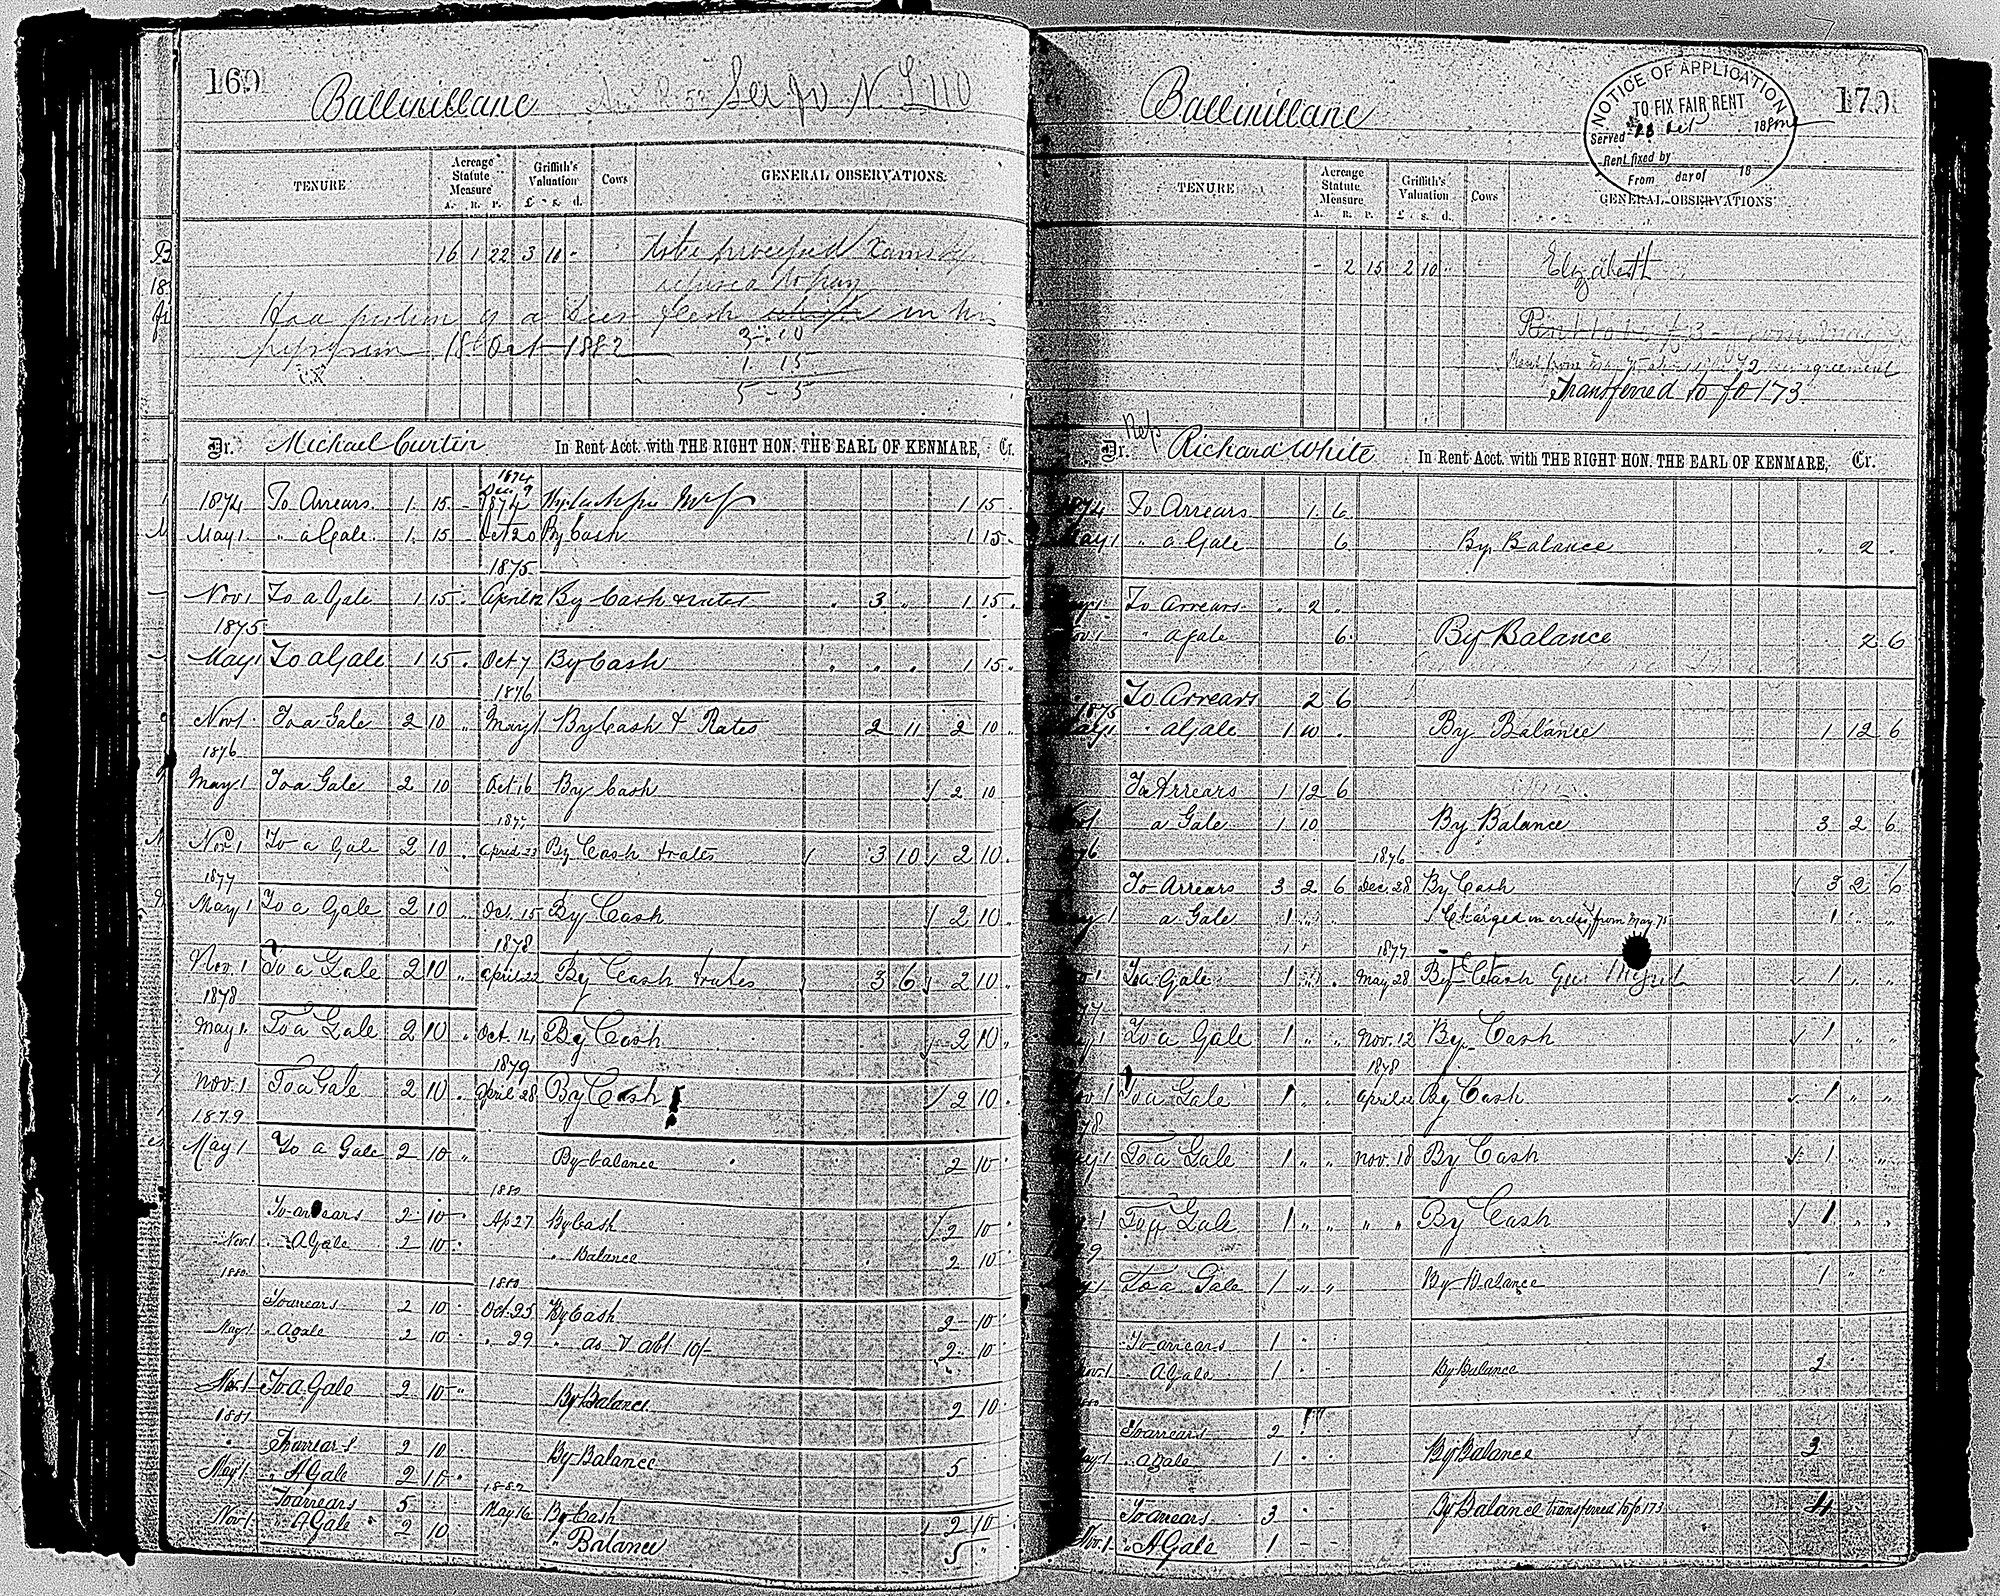 169
Ballinillane
TENURE
Acreage Statute Measure
A. R. P.
Griffith's Valuation
£ s. d.
Cows
GENERAL OBSERVATIONS.
16 1 22 3 10 -
refused to pay
Had portion of a in his
18 Oct 1882
3 - 10
1 15
5 - 5
Dr. Michael Curtin In Rent Acct. with THE RIGHT HON. THE EARL OF KENMARE, Cr.
1874
Dec. 9
1874 To Arrears. 1. 15. - 1874 1 15
May 1 " a Gale. 1. 15 Oct 20 By Cash 1 15 -
1875
Nov 1 To a Gale 1 15 . April 12 By Cash & rates . 3 " 1 15 .
1875
May 1 To a Gale 1 15 . Oct 7 By Cash " " . 1 15 "
1876
Nov 1. To a Gale 2 10 " May 1 By Cash & Rates 2 11 2 10 "
1876
May 1 To a Gale 2 10 Oct 16 By Cash 2 10
1877
Nov. 1 To a Gale 2 10 . April 23 By Cash & rates 3 10 2 10 .
1877
May 1 To a Gale 2 10 " Oct. 15 By Cash 2 10 "
1878
Nov. 1 To a Gale 2 10 " April 22 By Cash & rates 3 6 2 10 .
1878
May 1. To a Gale 2 10 . Oct. 14 By Cash 2 10 "
1879
Nov. 1 To a Gale 2 10 . April 28 By Cash 2 10 .
1879
May 1 To a Gale 2 10 " By balance 2 10 "
1880
To arrears 2 10 " Ap 27 By Cash 2 10 "
Nov. 1 " A Gale 2 10 " " Balance 2 10 "
1880 1880
To arrears 2 10 " Oct. 25 By Cash 2 - 10 "
May 1 " A gale 2 10 " " 29 " do 10/- 2 " 10 "
Nov. 1 To a Gale 2 10 " By Balance 2 10 "
1881
To arrears 2 10 By Balance 5
May 1 " A Gale 2 10 " 1882
To arrears 5 May 16 By Cash 2 10
Nov. 1 " A Gale 2 10 " Balance 5 "
170
Ballinillane
NOTICE OF APPLICATION
TO FIX FAIR RENT
Served 28 Oct 18
Rent fixed by
From day of 18
TENURE
Acreage Statute Measure
A. R. P.
Griffith's Valuation
£ s. d.
Cows
GENERAL OBSERVATIONS
- 2 15 2 10 "
Elizabeth
Rent to be £3
Rent from May 75 agreement
Transferred to fo 173.
Dr. Reps Richard White In Rent Acct. with THE RIGHT HON. THE EARL OF KENMARE, Cr.
1874 To Arrears 1. 6
May 1 " a Gale 6 By Balance 2 .
To Arrears " 2 "
" a gale 6. By Balance 2 6
To Arrears 2 6
1875
May 1 " a Gale 1 10 . By Balance 1 12 6
To Arrears 1 12 6
a Gale 1 10 By Balance 3 2 6
1876
To Arrears 3 2 6 Dec. 28 By Cash 3 2 6
a Gale 1 " " Charged in excess from May 75 1 " "
1877
To a Gale 1 " . May 28 By Cash 1 " "
To a Gale 1 " " Nov. 12 By Cash 1 " "
1878
To a Gale 1 " " April 22 By Cash 1 " "
To a Gale 1 " " Nov. 18 By Cash 1 " "
To a Gale 1 " " " " By Cash 1 " "
To a Gale 1 " " By Balance 1 " "
To arrears 1 " -
Nov. 1 A Gale 1 " - By Balance 2
To arrears 2 "
May 1 " a Gale 1 " - By Balance 3
To arrears 3 " - By Balance transferred to fo 173 4
Nov. 1 " A Gale 1 - -